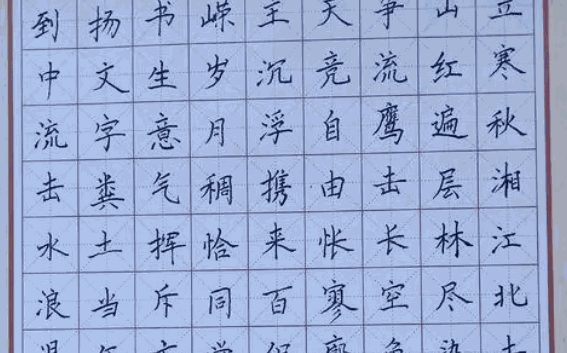 立寒秋湘江北去
山红遍层林尽染
争流鹰击长空鱼
天竞自由怅寥廓
主沉浮携来百侣
嵘岁月稠恰同学
书生意气挥斥方
扬文字粪土当年
到中流击水浪